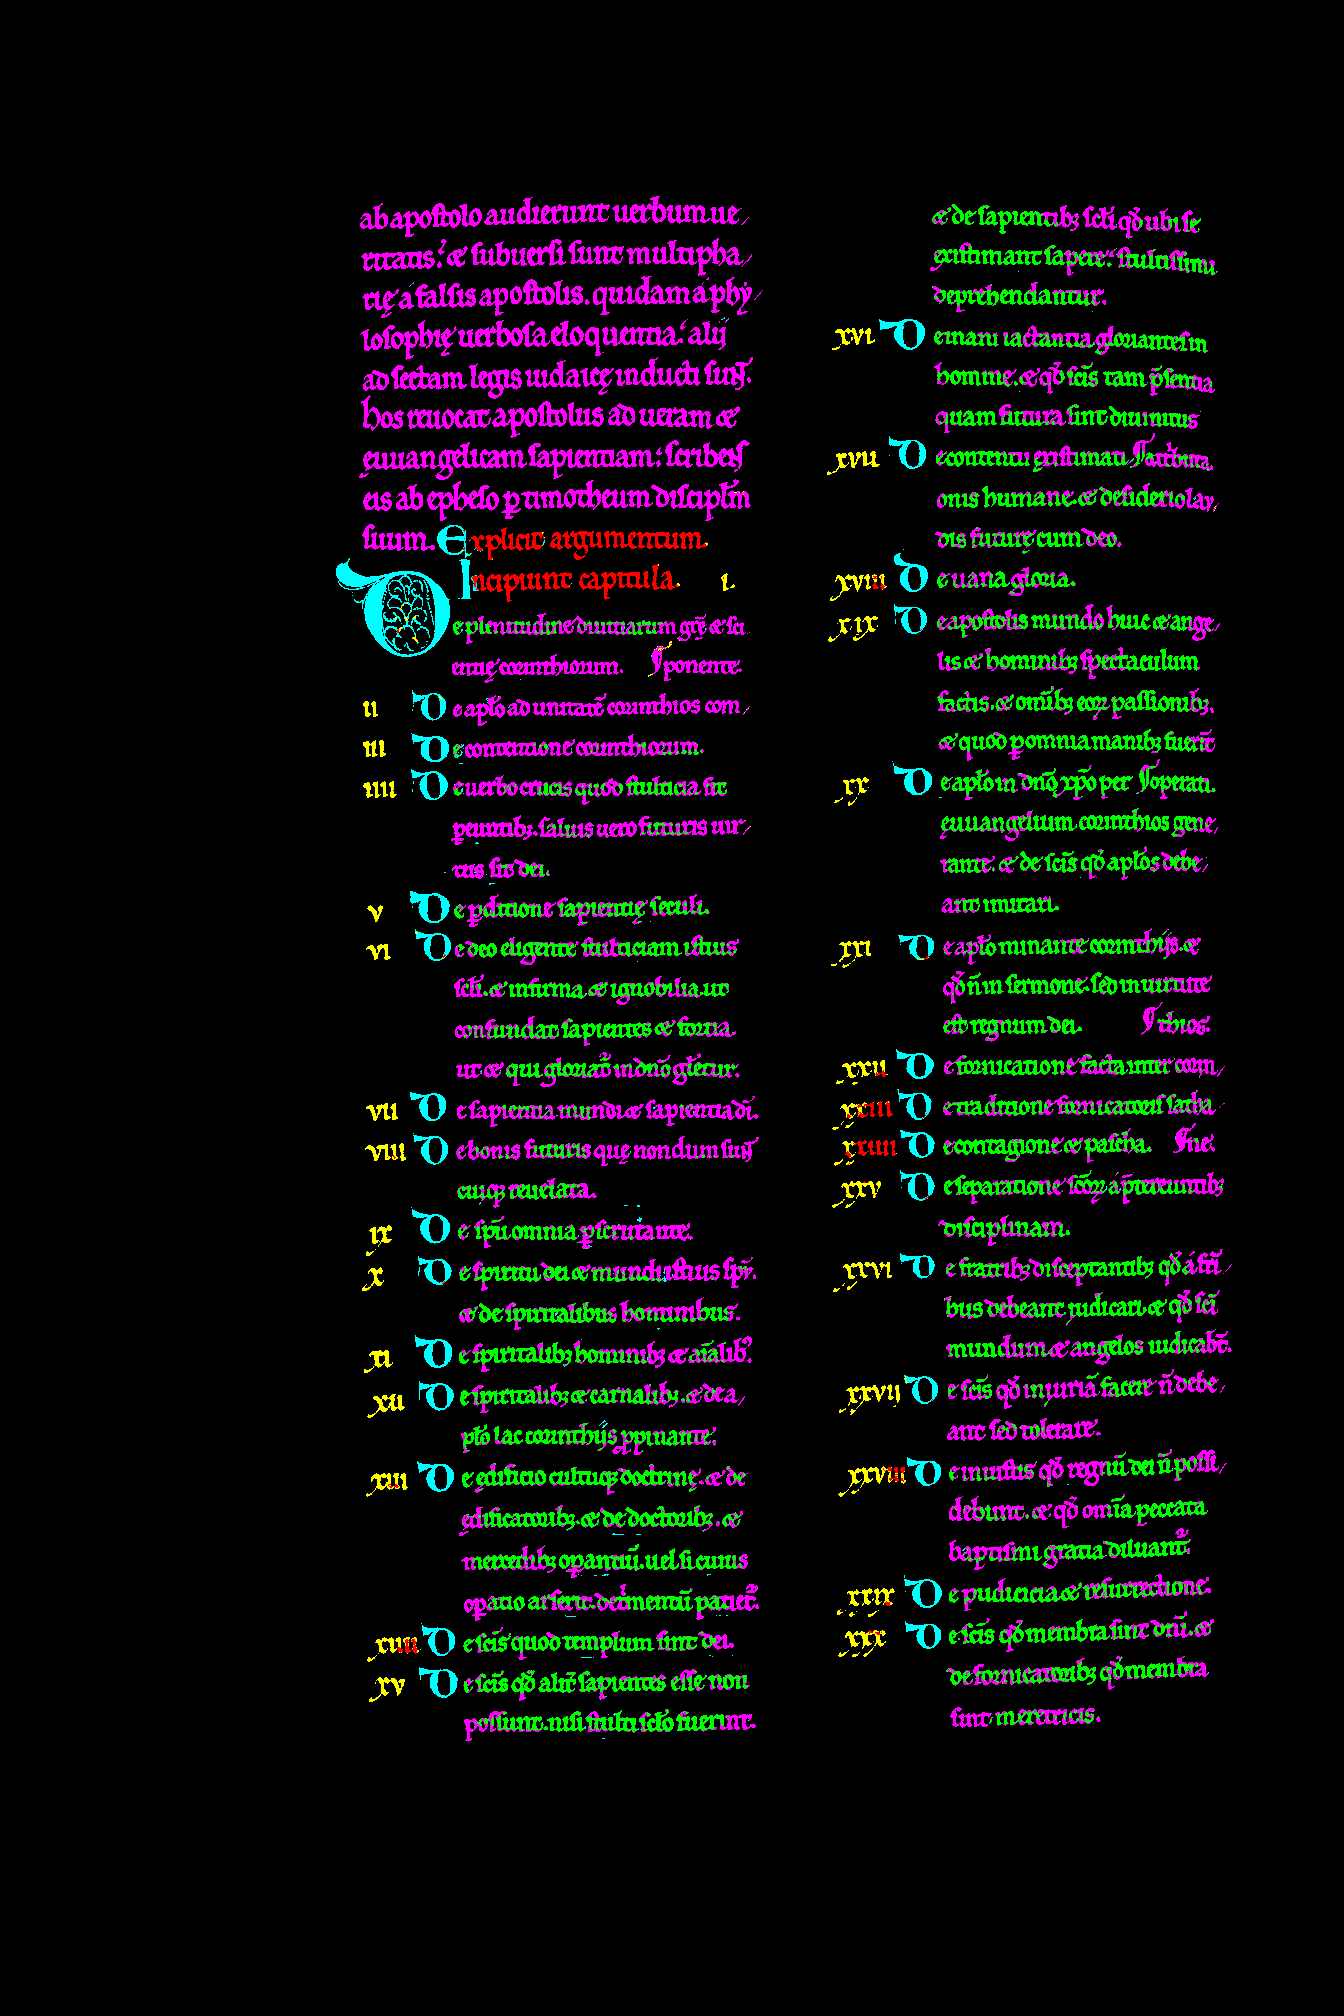 ab apostolo audierunt uerbum ue/
ritatis. & subuersi sunt multipha/
rię a falsis apostolis. quidam a phy/
losophię uerbosa eloquentia. alij
ad sectam legis iudaicę inducti sunt.
hos reuocat apostolus ad ueram &
euuangelicam sapientiam: scribens
eis ab epheso ꝑ timotheum discipłm
suum. Explicit argumentum.
Incipiunt capitula. i.
De plenitudine diuitiarum grę̄ & sci
entię corinthiorum. ponente.
ii De apło ad unitatē corinthios com/
iii De contentione corinthiorum.
iiii De uerbo crucis quod stulticia sit
ꝑeuntibꝫ. saluis uero futuris uir/
tus sit dei.
v De ꝑditione sapientię seculi.
vi De deo eligente stulticiam istius
scłi. & infirma. & ignobilia. ut
confundat sapientes & fortia.
ut & qui gloriat̄ in dnō głetur.
vii De sapientia mundi & sapientia dī.
viii De bonis futuris quę nondum sunt
cuiqꝫ reuelata.
ix De spū omnia ꝑscrutante.
x De spiritu dei & mundi istius spū.
& de spiritalibus hominibus.
xi De spiritalibꝫ hominibꝫ & aīalibꝰ.
xii De spiritalibꝫ & carnalibꝫ. & de a/
pło lac corinthijs ꝓpinante.
xiii De ędificio cultuqꝫ doctrinę. & de
ędificatoribꝫ. & de doctoribꝫ. &
mercedibꝫ oꝑantiū. uel si cuius
oꝑatio arserit. det̄mentū patiet̄.
xiiii De scīs quod templum sint dei.
xv De scīs qđ alit̄ sapientes esse non
possunt. nisi stulti scło fuerint.
& de sapientibꝫ scłi qđ ubi se
existimant sapere. stultissimi
deprehendantur.
xvi De inani iactantia gloriantes in
homine. & qđ scīs tam p̄sentia
quam futura sint diuinitus
xvii De contentu existimati attributa.
onis humane. & desiderio lau/
dis futurę cum deo.
xviii De uana gloria.
xix De apostolis mundo huic & ange/
lis & hominibꝫ spectaculum
factis. & omībꝫ eoꝝ passionibꝫ.
& quod ꝑ omnia manibꝫ fuerīt
xx De apło in dnō xp̄o per operati.
euuangelium corinthios gene/
rante. & de scīs qđ apłos debe/
ant imitari.
xxi De apło minante corinthijs. &
qđ n̄ in sermone. sed in uirtute
est regnum dei. thios.
xxii De fornicatione facta inter corin/
xxiii De traditione fornicatoris satha/
xxiiii De contagione & pascha. nę.
xxv De separatione scōꝝ a p̄tereuntibꝫ
disciplinam.
xxvi De fratribꝫ disceptantibꝫ qđ a frī/
bus debeant iudicari. & qđ scī
mundum & angelos iudicabt̄.
xxvij De scīs qđ iniuriā facere n̄ debe/
ant sed tolerare.
xxviii De iniustis qđ regnū dei n̄ possi/
debunt. & qđ omīa peccata
baptismi gratia diluant̄.
xxix De pudicicia & resurrectione.
xxx De scīs qđ membra sint dnī. &
de fornicatoribꝫ qđ membra
sint meretricis.